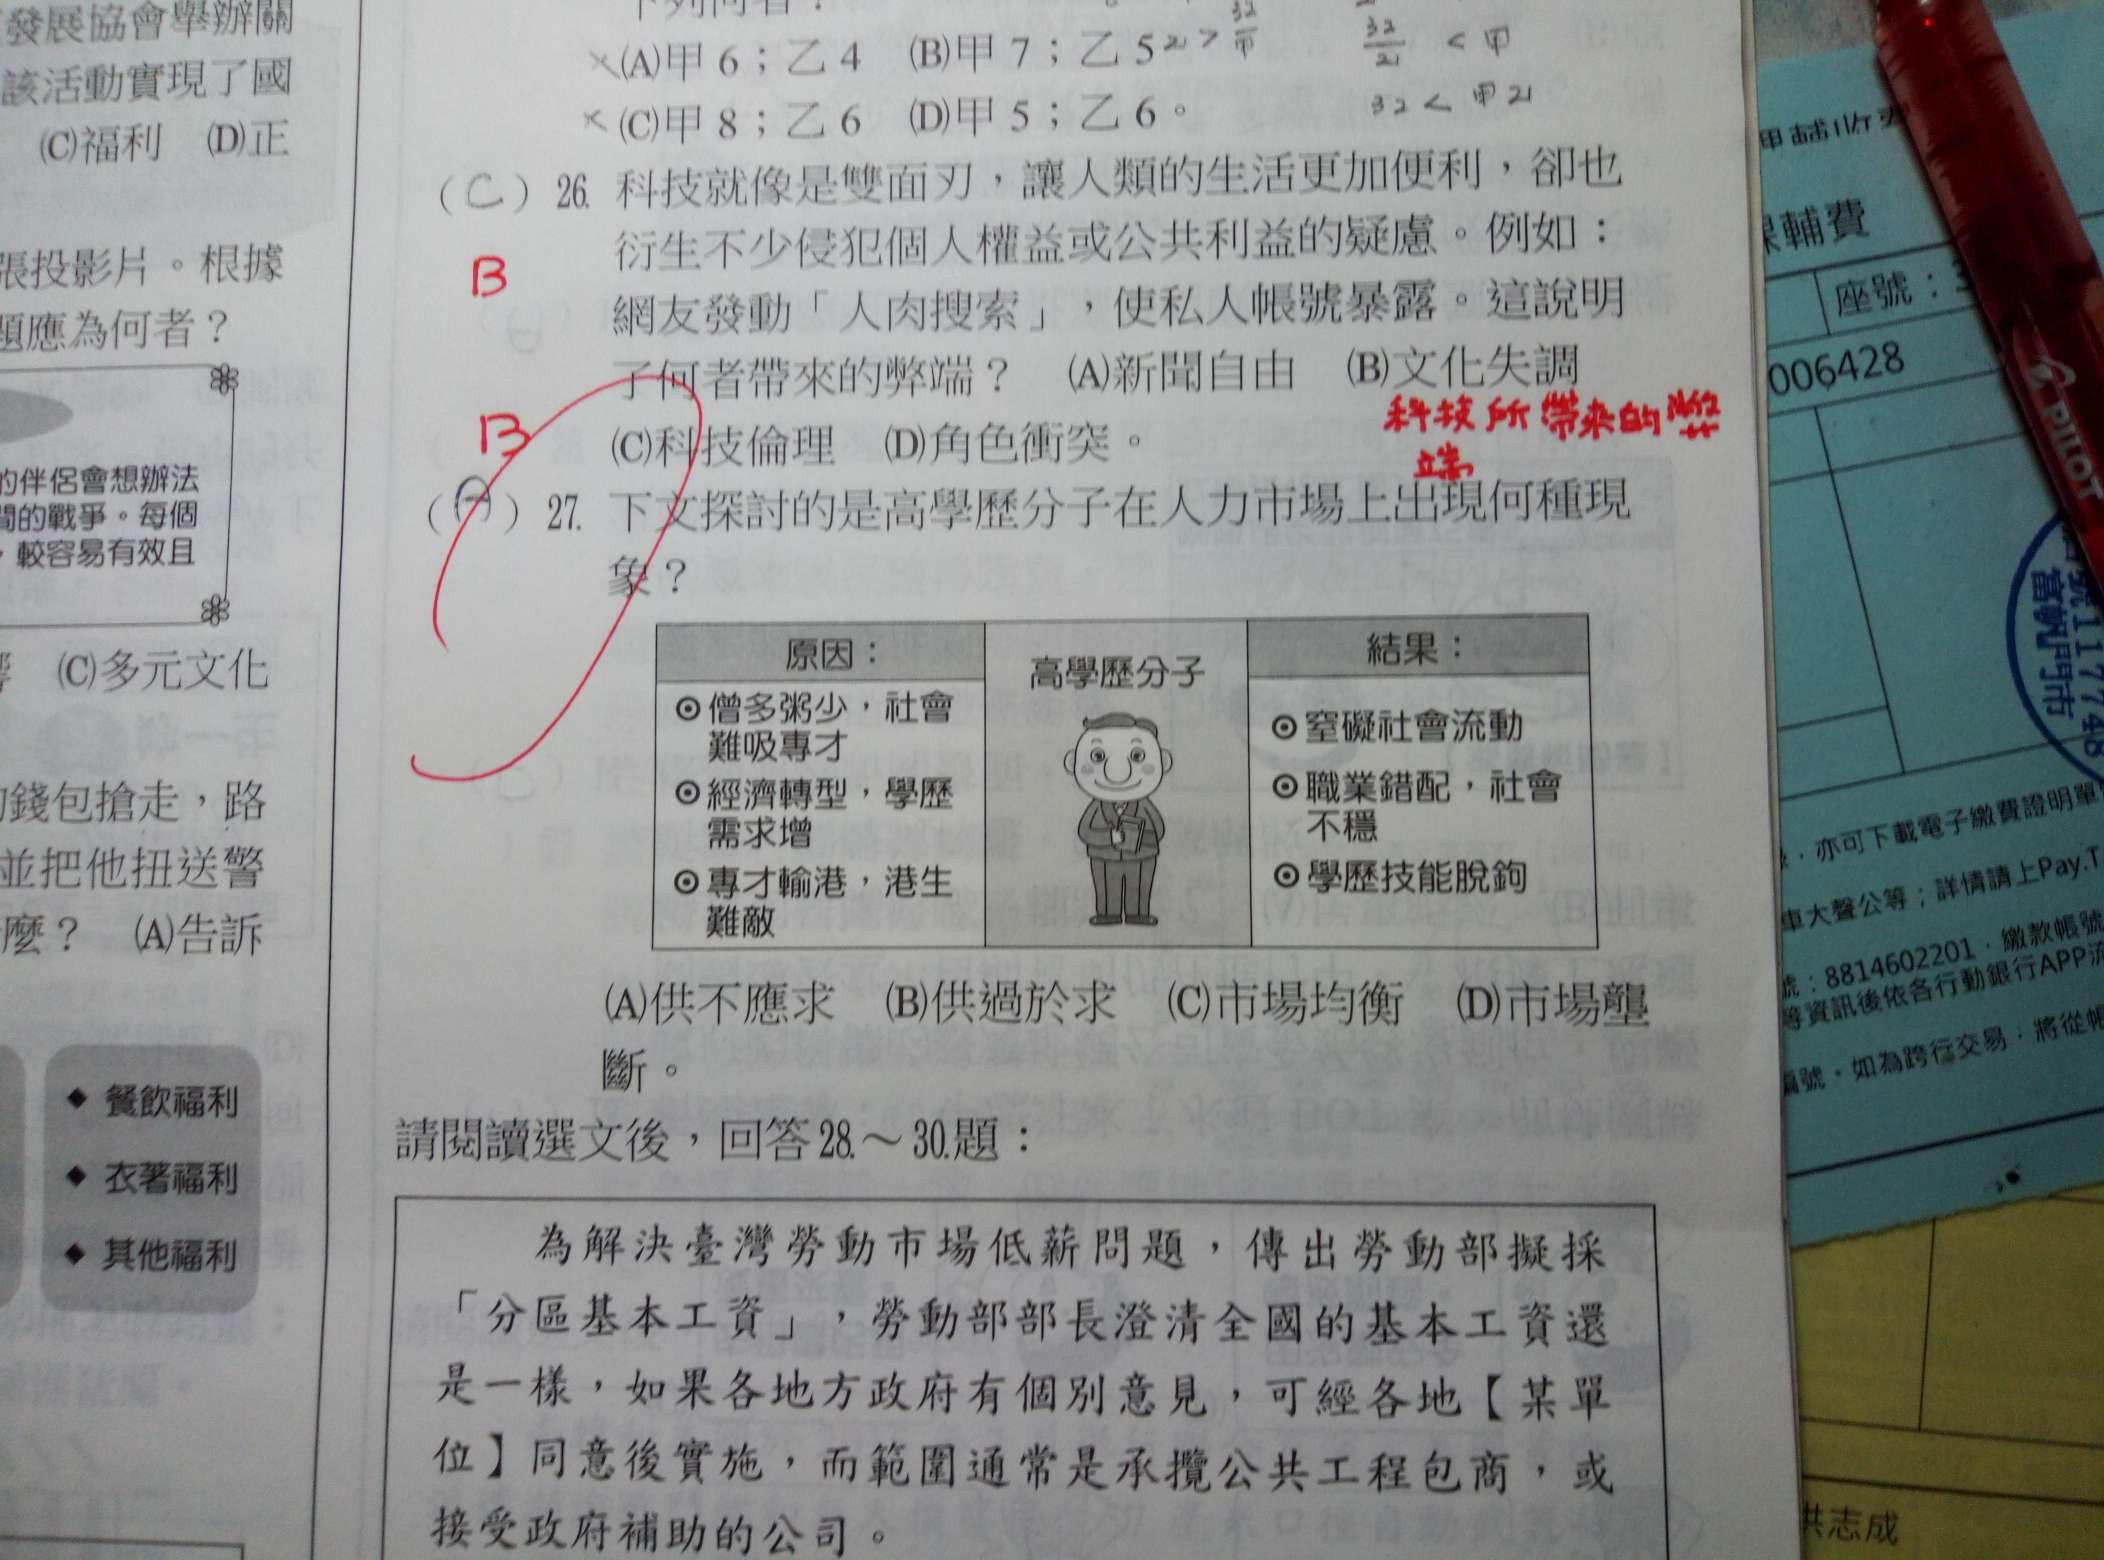 發展協會舉辦關
該活動實現了國
(C)福利 (D)正
張投影片。根據
題應為何者？
的伴侶會想辦法
間的戰爭。每個
，較容易有效且
(C)多元文化
的錢包搶走，路
並把他扭送警
麼？ (A)告訴
◆ 餐飲福利
◆ 衣著福利
◆ 其他福利
下列何者？
×(A)甲 6；乙 4 (B)甲 7；乙 5
×(C)甲 8；乙 6 (D)甲 5；乙 6。
32/21 < 甲
32 < 甲21
(C) 26. 科技就像是雙面刃，讓人類的生活更加便利，卻也
衍生不少侵犯個人權益或公共利益的疑慮。例如：
B
網友發動「人肉搜索」，使私人帳號暴露。這說明
了何者帶來的弊端？ (A)新聞自由 (B)文化失調
科技所帶来的弊
端
B
(C)科技倫理 (D)角色衝突。
(A) 27. 下文探討的是高學歷分子在人力市場上出現何種現
象？
原因：
⊙僧多粥少，社會
難吸專才
⊙經濟轉型，學歷
需求增
⊙專才輸港，港生
難敵
高學歷分子
結果：
⊙窒礙社會流動
⊙職業錯配，社會
不穩
⊙學歷技能脫鉤
(A)供不應求 (B)供過於求 (C)市場均衡 (D)市場壟
斷。
請閱讀選文後，回答28.～30.題：
為解決臺灣勞動市場低薪問題，傳出勞動部擬採
「分區基本工資」，勞動部部長澄清全國的基本工資還
是一樣，如果各地方政府有個別意見，可經各地【某單
位】同意後實施，而範圍通常是承攬公共工程包商，或
接受政府補助的公司。
輔費
座號：
006428
PILOT
117748
，亦可下載電子繳費證明單
車大聲公等；詳情請上Pay.T
號：8814602201，繳款帳號
等資訊後依各行動銀行APP流
編號，如為跨行交易，將從帳
洪志成